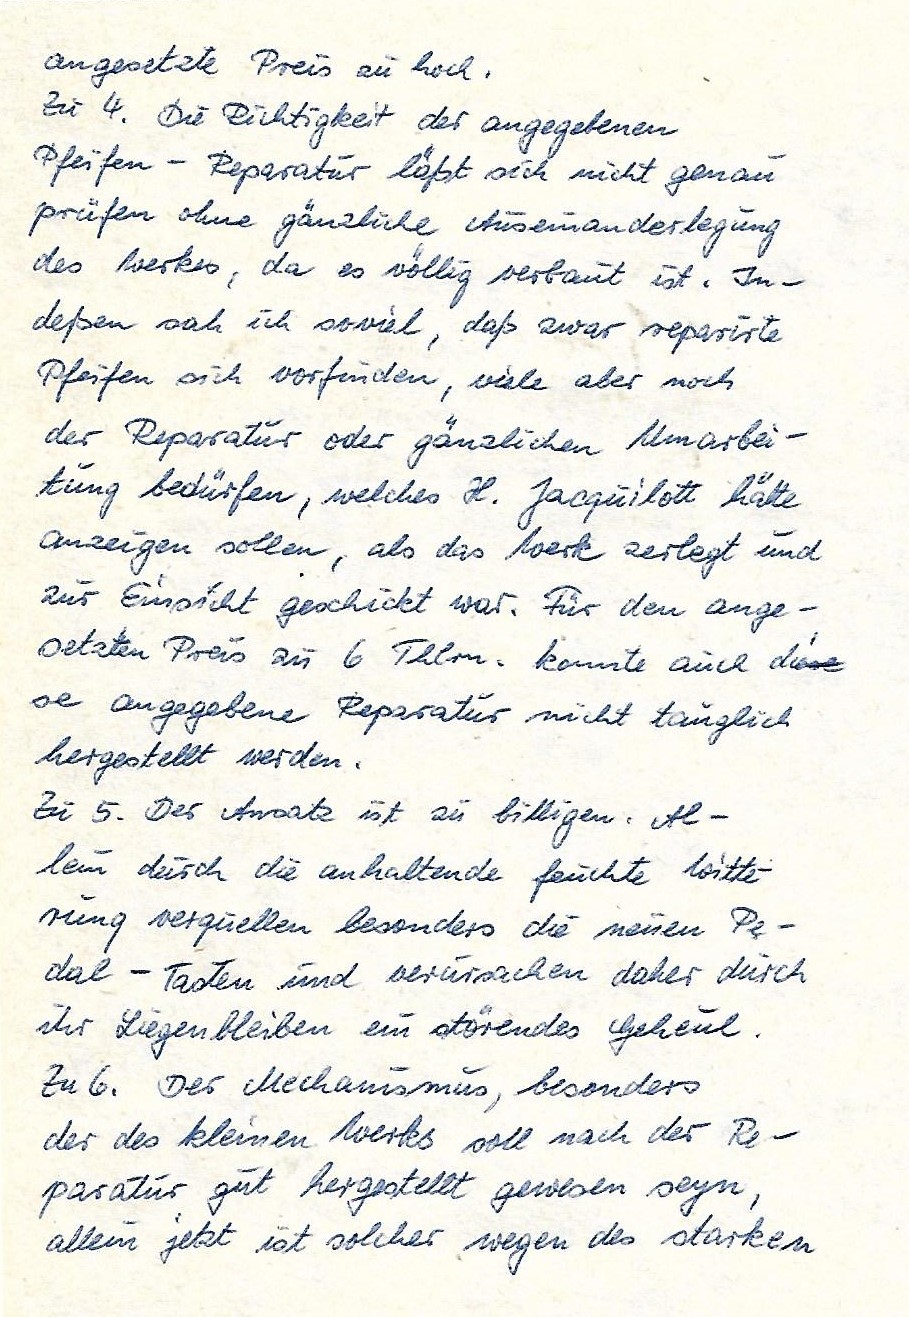 angesetzte Preis zu hoch.
Zu 4. Die Richtigkeit der angegebenen
Pfeifen - Reparatur läßt sich nicht genau
prüfen ohne gänzliche Auseinanderlegung
des Werkes, da es völlig verbaut ist. In-
deßen sah ich soviel, daß zwar reparirte
Pfeifen sich vorfinden, viele aber noch
der Reparatur oder gänzlichen Umarbei-
tung bedürfen, welches H. Jacquilott hätte
anzeigen sollen, als das Werk zerlegt und
zur Einsicht geschickt war. Für den ange-
setzten Preis zu 6 Thlrn. konnte auch die
se angegebene Reparatur nicht tauglich
hergestellt werden.
Zu 5. Der Ansatz ist zu billigen. Al-
lein durch die anhaltende feuchte Witte
rung verquellen besonders die neuen Pe-
dal - Tasten und verursachen daher durch
ihr Liegenbleiben ein störendes Geheul.
Zu 6. Der Mechanismus, besonders
der des kleinen Werks soll nach der Re-
paratur gut hergestellt gewesen seyn,
allein jetzt ist solcher wegen des starken